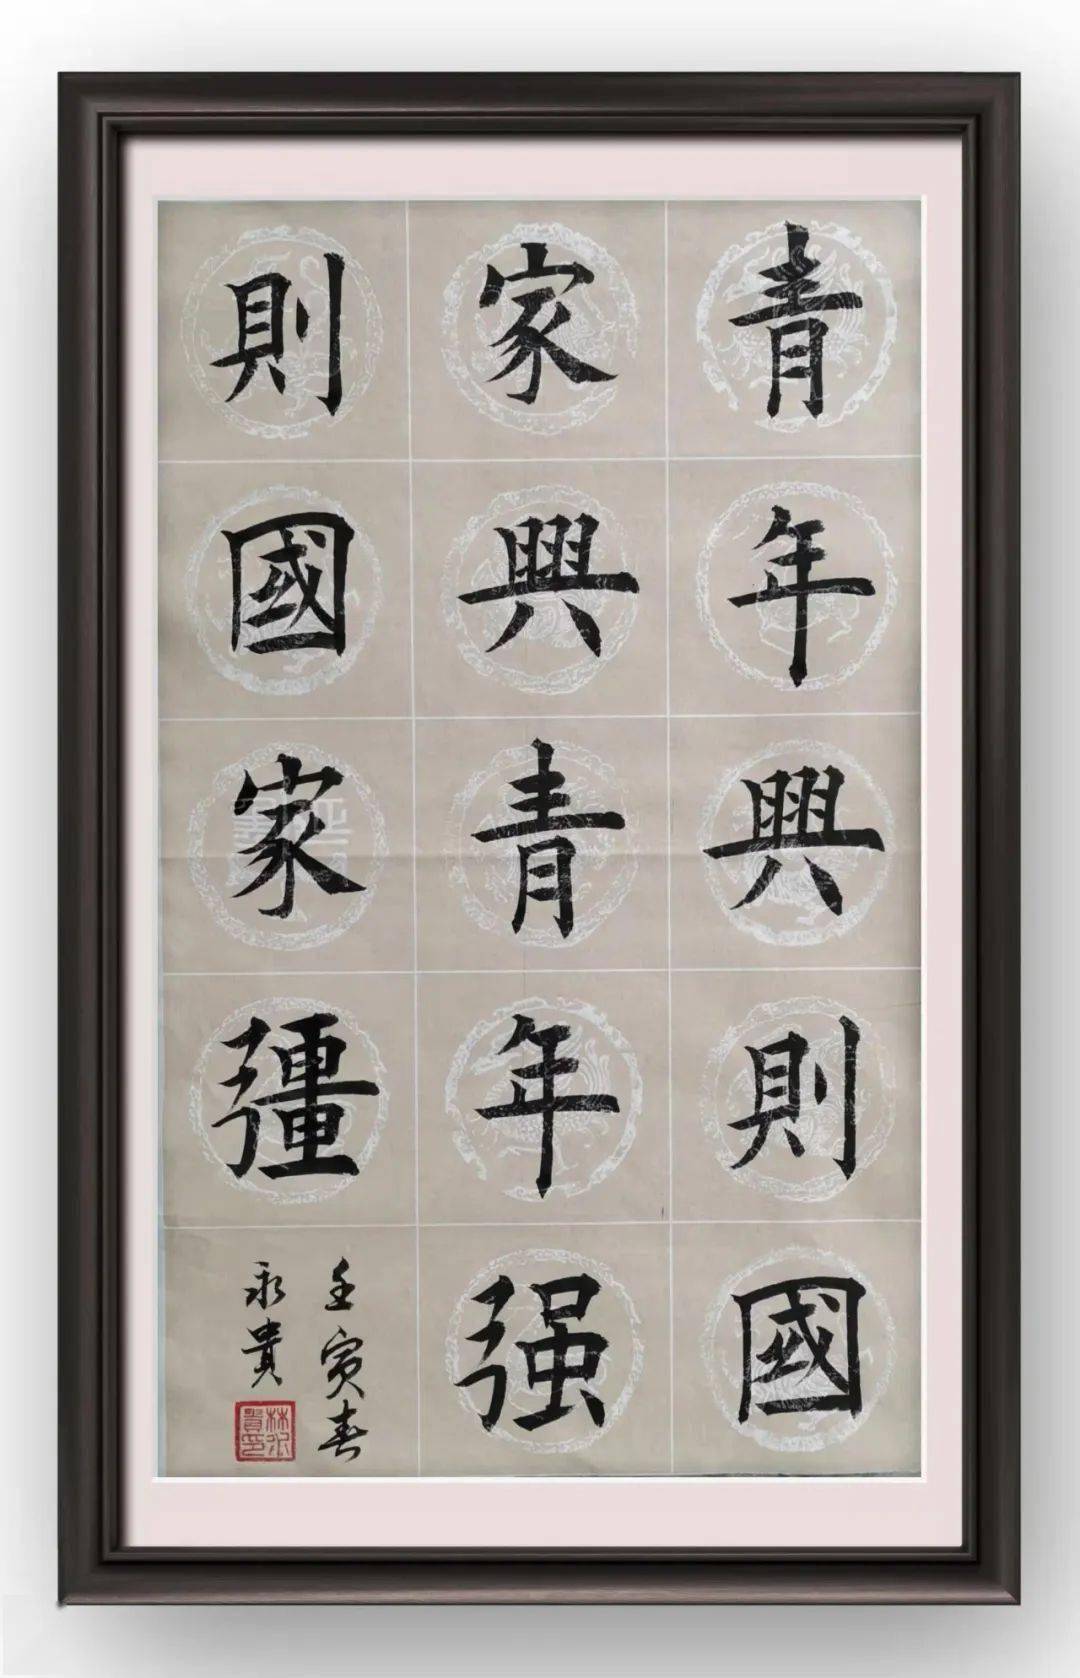 青年興則國
家興青年强
則國家彊
壬寅春
永貴
林永貴印